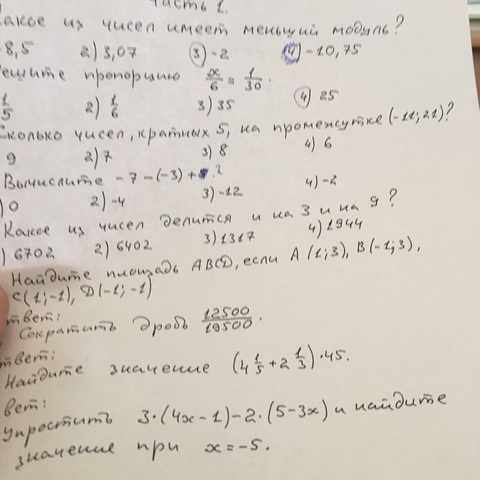 часть 1.
какое из чисел имеет меньший модуль?
-8,5 2) 3,07 3) -2 4) -10,75
ешите пропорцию x/6 = 1/30.
1/5 2) 1/6 3) 35 4) 25
Сколько чисел, кратных 5, на промежутке (-11; 21)?
9 2) 7 3) 8 4) 6
Вычислите -7-(-3)+
) 0 2) -4 3) -12 4) -2
Какое из чисел делится и на 3 и на 9?
) 6702 2) 6402 3) 1317 4) 1944
Найдите площадь ABCD, если A (1; 3), B (-1; 3),
C (1; -1), D (-1; -1)
твет:
Сократить дробь 12500/19500.
твет:
Найдите значение (4 1/5 + 2 1/3) · 45.
вет:
Упростить 3·(4x-1)-2·(5-3x) и найдите
значение при x=-5.